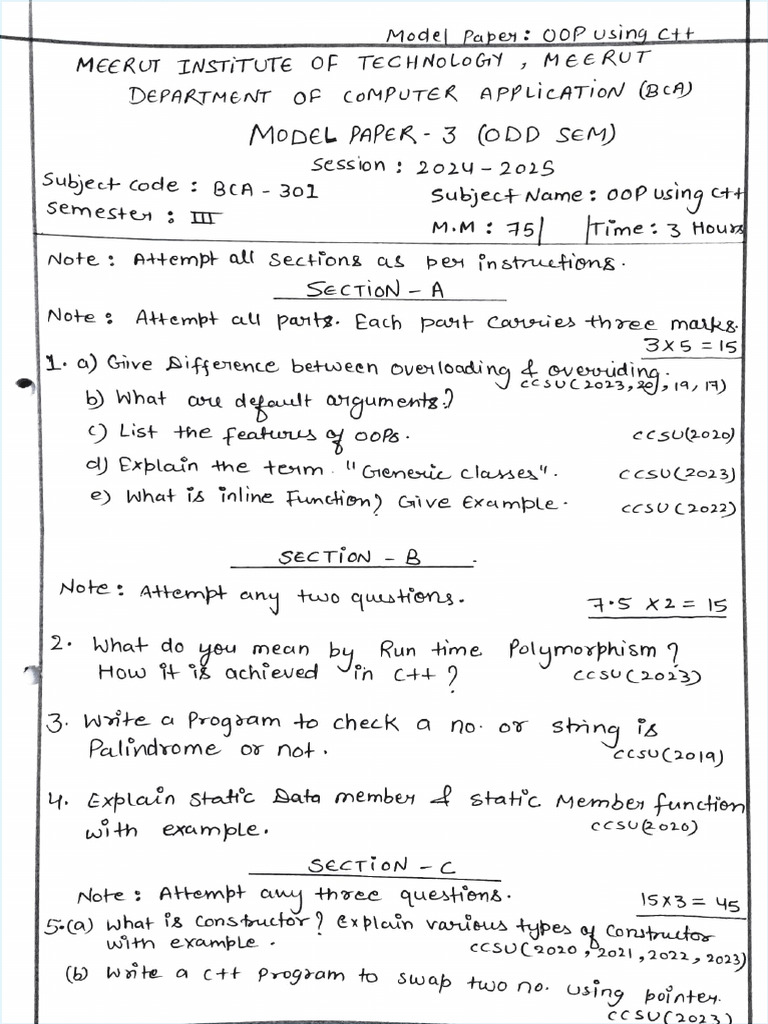 Model Paper: OOP using C++
MEERUT INSTITUTE OF TECHNOLOGY, MEERUT
DEPARTMENT OF COMPUTER APPLICATION (BCA)
MODEL PAPER - 3 (ODD SEM)
Session : 2024-2025
Subject code : BCA - 301 Subject Name: OOP using C++
Semester : III M.M : 75| |Time: 3 Hours
Note: Attempt all Sections as per instructions.
SECTION - A
Note: Attempt all parts. Each part carries three marks.
3X5 = 15
1. a) Give Difference between overloading & overriding.
CCSU(2023, 20, 19, 17)
b) What are default arguments?
c) List the features of OOPs. CCSU(2020)
d) Explain the term "Generic classes". CCSU(2023)
e) What is inline Function? Give Example. CCSU(2022)
SECTION - B
Note: Attempt any two questions. 7.5 X2 = 15
2. What do you mean by Run time Polymorphism?
How it is achieved in C++? CCSU(2023)
3. Write a Program to check a no. or string is
Palindrome or not. CCSU(2019)
4. Explain Static Data member & Static Member function
with example. CCSU(2020)
SECTION - C
Note: Attempt any three questions. 15X3 = 45
5.(a) What is constructor? Explain various types of Constructor
with example. CCSU(2020, 2021, 2022, 2023)
(b) Write a C++ Program to swap two no. using pointer.
CCSU(2023)